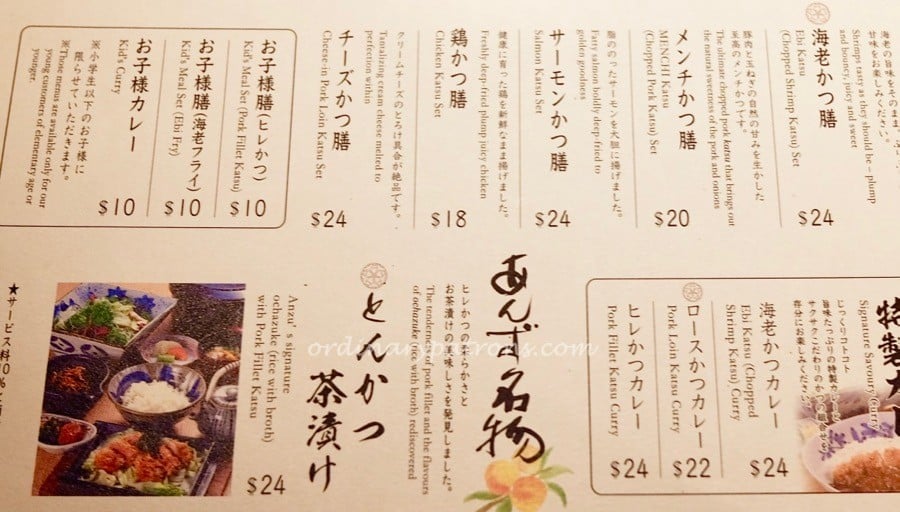 海老の旨味をそのまま。
甘味をお楽しみください。
Shrimps tasty as they should be – plump
and bouncy, juicy and sweet
海老かつ膳
Ebi Katsu
(Chopped Shrimp Katsu) Set
$24
豚肉と玉ねぎの自然の甘みを生かした
至高のメンチかつです。
The ultimate chopped pork katsu that brings out
the natural sweetness of the pork and onions
メンチかつ膳
MENCHI Katsu
(Chopped Pork Katsu) Set
$20
脂ののったサーモンを大胆に揚げました。
Fatty salmon boldly deep-fried to
golden goodness
サーモンかつ膳
Salmon Katsu Set
$24
健康に育った鶏を新鮮なまま揚げました。
Freshly deep-fried plump juicy chicken
鶏かつ膳
Chicken Katsu Set
$18
クリームチーズのとろけ具合が絶品です。
Tantalizing cream cheese melted to
perfection within
チーズかつ膳
Cheese-in Pork Loin Katsu Set
$24
お子様膳(ヒレかつ)
Kid's Meal Set (Pork Fillet Katsu)
$10
お子様膳(海老フライ)
Kid's Meal Set (Ebi Fry)
$10
お子様カレー
Kid's Curry
$10
※小学生以下のお子様に
限らせていただきます。
※Those menus are available only for our
young customers of elementary age or
younger.
Signature Savoury Curry
じっくりコトコト
旨味たっぷりの特製カレーと
サクサクこだわりのかつの組合せを
存分にお楽しみください。
海老かつカレー
Ebi Katsu (Chopped
Shrimp Katsu) Curry
$24
ロースかつカレー
Pork Loin Katsu Curry
$22
ヒレかつカレー
Pork Fillet Katsu Curry
$24
あんず名物
ヒレかつの柔らかさと
お茶漬けの美味しさを発見しました。
The tenderness of pork fillet and the flavours
of ochazuke (rice with broth) rediscovered
とんかつ
茶漬け
Anzu's signature
ochazuke (rice with broth)
with Pork Fillet Katsu
$24
★サービス料10%と
ordinarypatrons.com